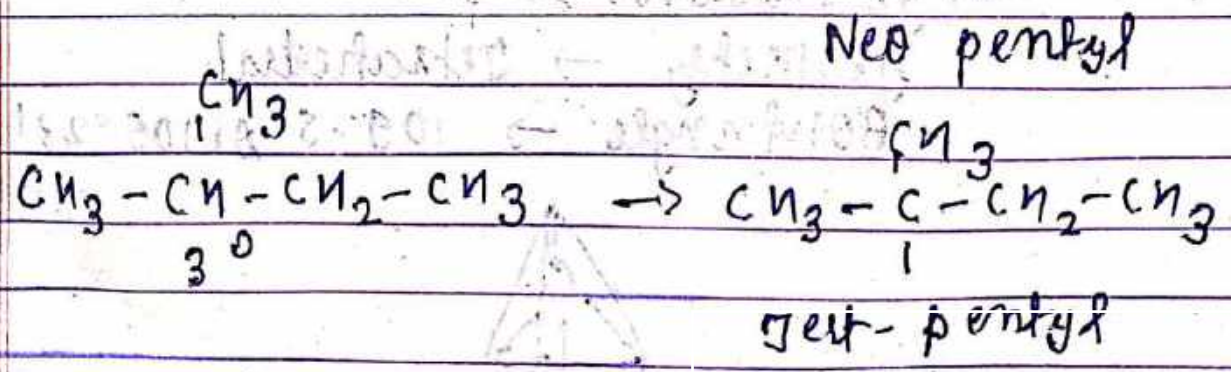 Neo pentyl
CH3 CH3
CH3 - CH - CH2 - CH3 → CH3 - C - CH2 - CH3
3°
Tert- pentyl